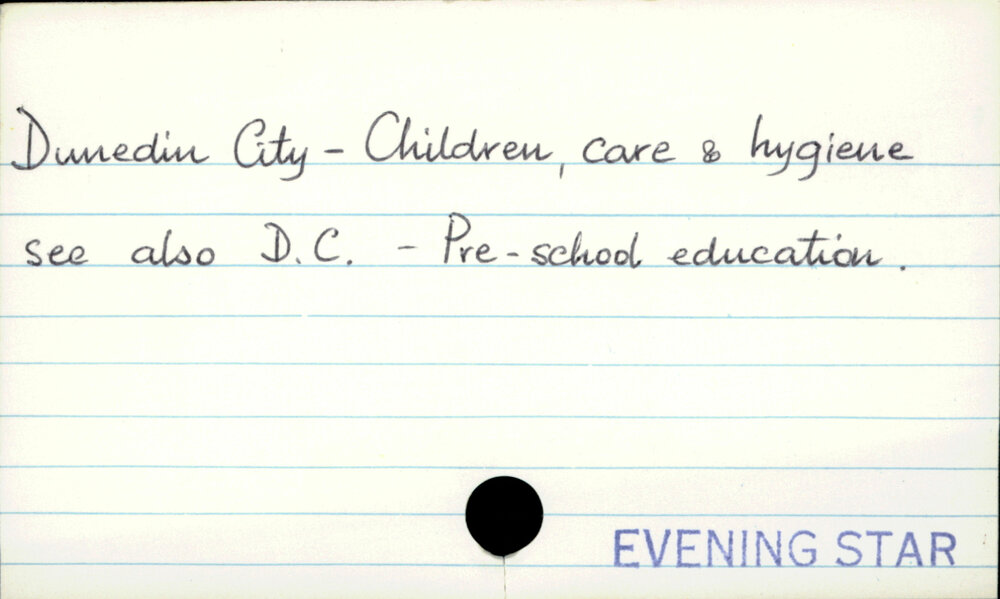 Dunedin City - Children, care & hygiene
see also D.C. - Pre-school education.
EVENING STAR